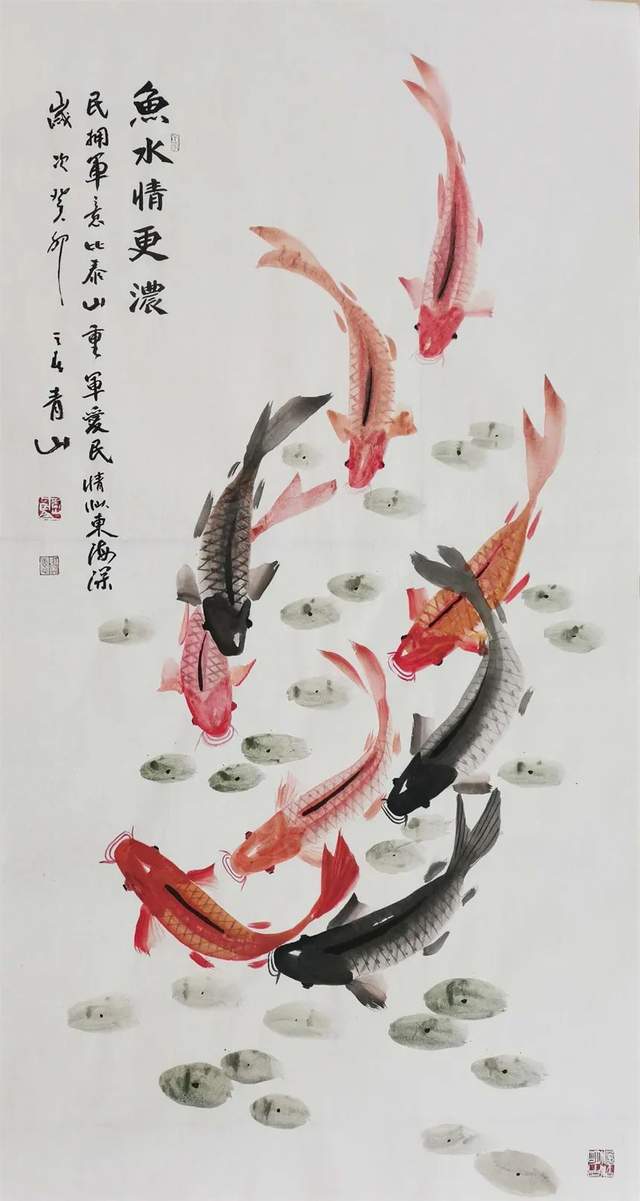 魚水情更濃
民拥軍意比泰山重軍愛民情似東海深
歲次癸卯
青山